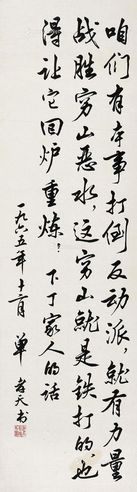 咱们有本事打倒反动派，就有力量
战胜穷山恶水，这穷山就是铁打的也
得让它回炉重炼！下丁家人的话
一九六五年十二月 单孝天书